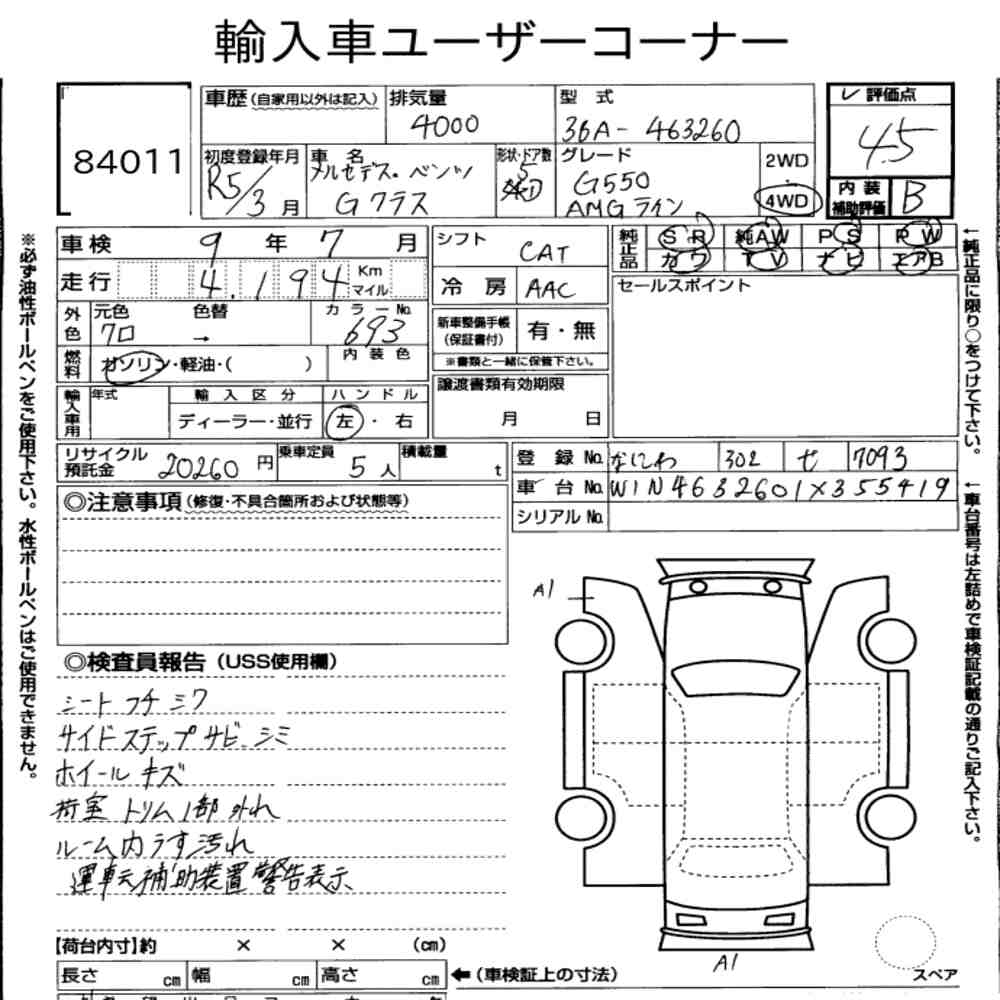 輸入車ユーザーコーナー
84011
車歴(自家用以外は記入)
排気量
4000
型式
3BA-463260
レ 評価点
4.5
内装
補助評価
B
初度登録年月
R5/3月
車名
メルセデス・ベンツ
Gクラス
形状・ドア数
5
グレード
G550
AMGライン
2WD
・
4WD
車検 9年7月
走行 4,194 Km
マイル
外色
元色
クロ
色替
→
カラーNo.
693
燃料
ガソリン・軽油・( )
内装色
輸入車用
年式
輸入区分
ディーラー・並行
ハンドル
左・右
シフト CAT
冷房 AAC
新車整備手帳
(保証書付)
有・無
※書類と一緒に保管下さい。
譲渡書類有効期限
月 日
純正品
SR 純AW PS PW
カワ TV ナビ エアB
セールスポイント
リサイクル
預託金
20260円
乗車定員
5人
積載量
t
登録No. なにわ 302 せ 7093
車台No. W1N4632601X355419
シリアルNo.
◎注意事項(修復・不具合箇所および状態等)
◎検査員報告(USS使用欄)
シートフチシワ
サイドステップサビ、シミ
ホイールキズ
荷室トリム1部外れ
ルーム内うす汚れ
運転補助装置警告表示
A1
A1
スペア
【荷台内寸】約 × × (cm)
長さ cm 幅 cm 高さ cm
←(車検証上の寸法)
※必ず油性ボールペンをご使用下さい。水性ボールペンはご使用できません。
←純正品に限り○をつけて下さい。
←車台番号は左詰めで車検証記載の通りご記入下さい。